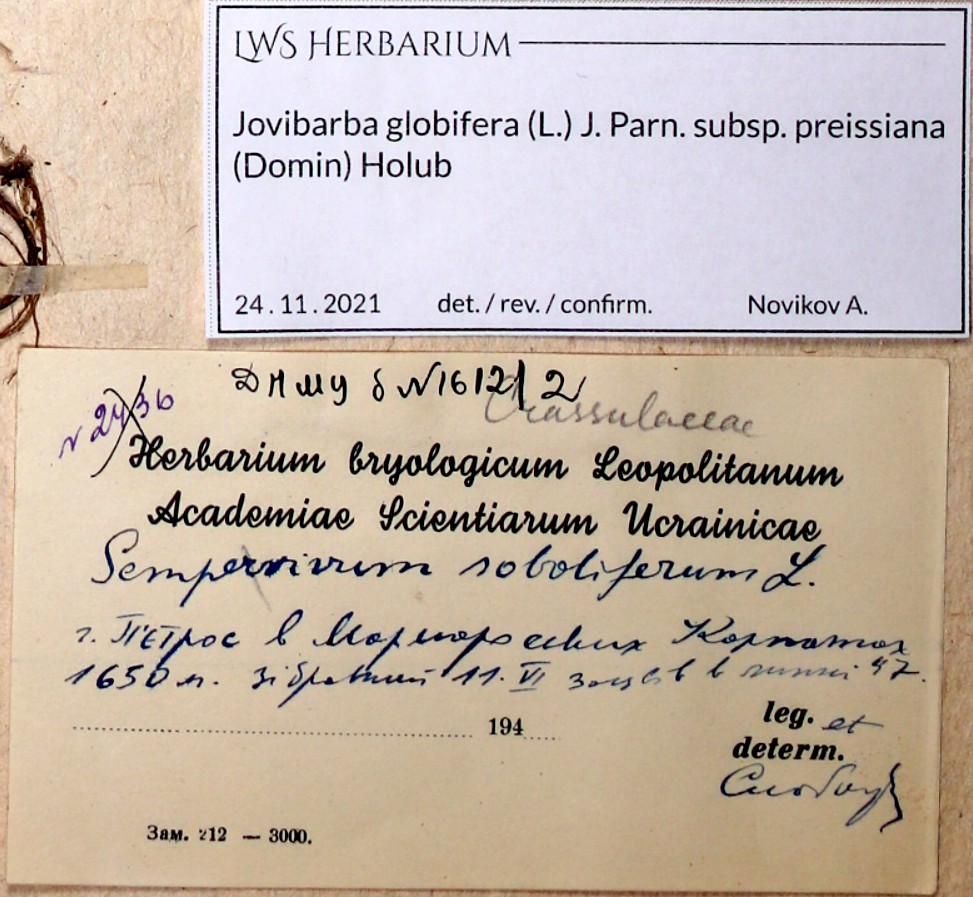 LWS HERBARIUM
Jovibarba globifera (L.) J. Parn. subsp. preissiana
(Domin) Holub
24.11.2021 det./rev./confirm. Novikov A.
ДНМУ б №1612/2
Crassulaceae
№ 2436
Herbarium bryologicum Leopolitanum
Academiae Scientiarum Ucrainicae
Sempervivum soboliferum L.
г. Петрос в Мармароських Карпатах
1650 м. Зібраний 11. VI зацвів в липні 47.
194
leg. et
determ.
Зам. 212 — 3000.